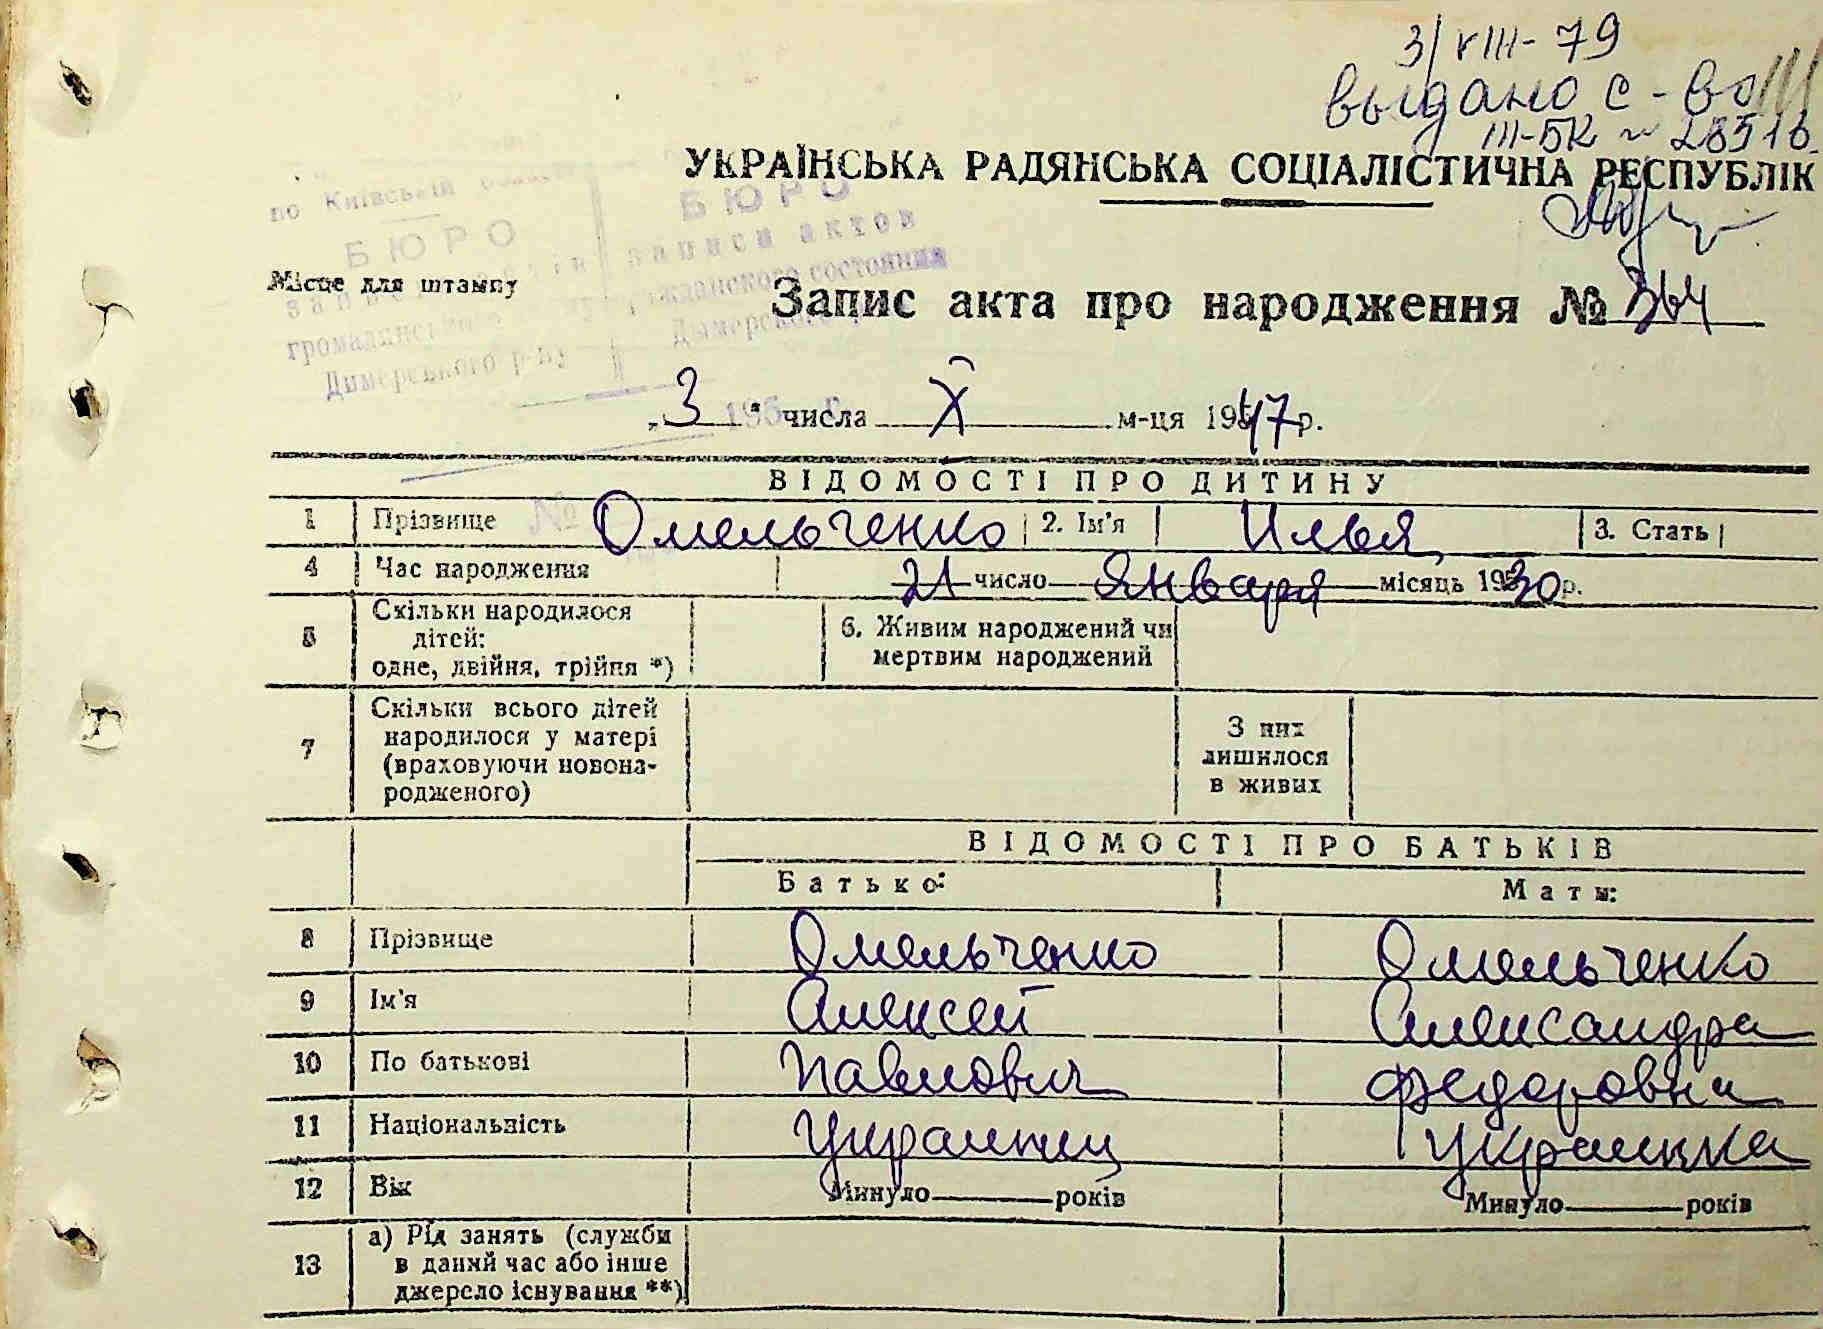 3/VIII-79
выдано с-во
III-БК № 28516
УКРАЇНСЬКА РАДЯНСЬКА СОЦІАЛІСТИЧНА РЕСПУБЛІК
по Київській
БЮРО БЮРО
записа актов
гражданского состояния
громадянського
Димерського р-ну Димерского р
Місце для штампу
Запис акта про народження № 364
„3" числа X м-ця 1947 р.
195 г.
ВІДОМОСТІ ПРО ДИТИНУ
1 Прізвище Омельченко 2. Ім'я Илья 3. Стать
№
4 Час народження 21 число января місяць 1930 р.
5 Скільки народилося дітей: одне, двійня, трійня *) 6. Живим народжений чи мертвим народжений
7 Скільки всього дітей народилося у матері (враховуючи новонародженого) З них лишилося в живих
ВІДОМОСТІ ПРО БАТЬКІВ
Батько: Мати:
8 Прізвище Омельченко Омельченко
9 Ім'я Алексей Александра
10 По батькові Павлович Федоровна
11 Національність Украинец Украинка
12 Вік Минуло років Минуло років
13 а) Рід занять (служби в даний час або інше джерело існування **)